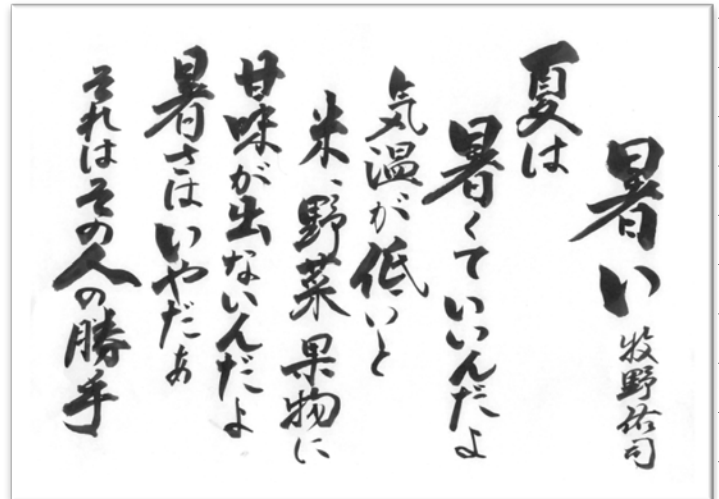 暑い 牧野佑司
夏は
暑くていいんだよ
気温が低いと
米、野菜 果物に
甘味が出ないんだよ
暑さはいやだあ
それはその人の勝手